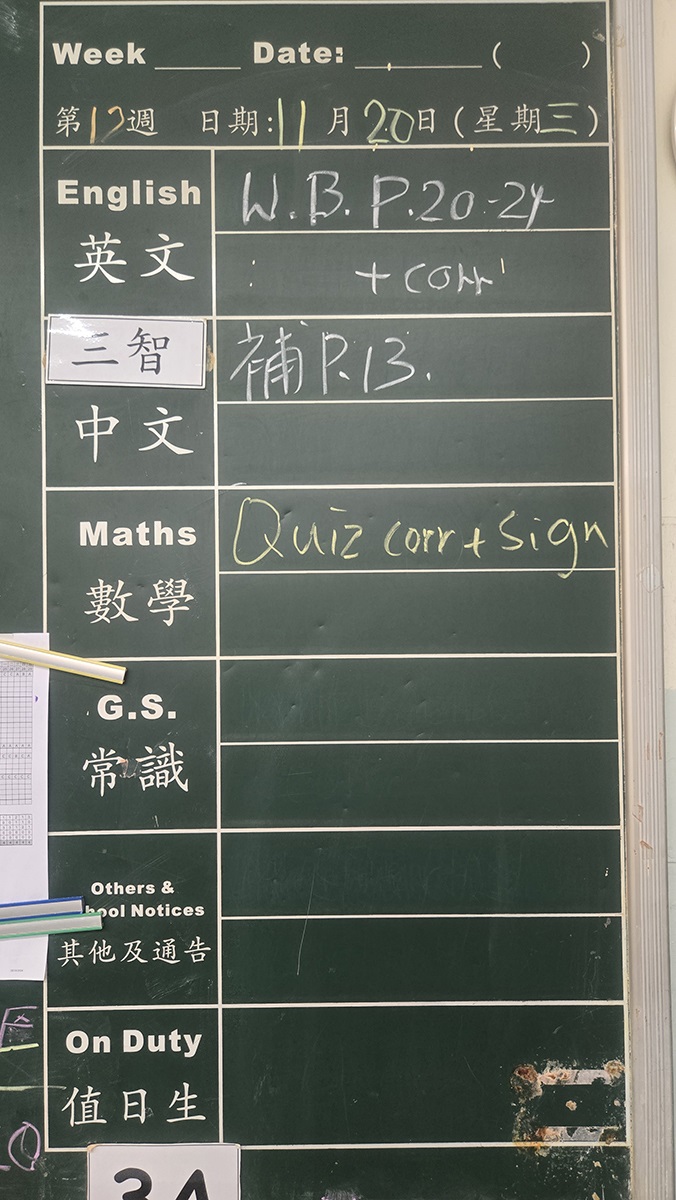 Week ____ Date: ____ ( )
第12週 日期:11月20日(星期三)
English
英文
W.B. P.20-24
: + corr'
三智
中文
補 P.13.
Maths
數學
Quiz corr + Sign
G.S.
常識
Others &
hool Notices
其他及通告
On Duty
值日生
3A